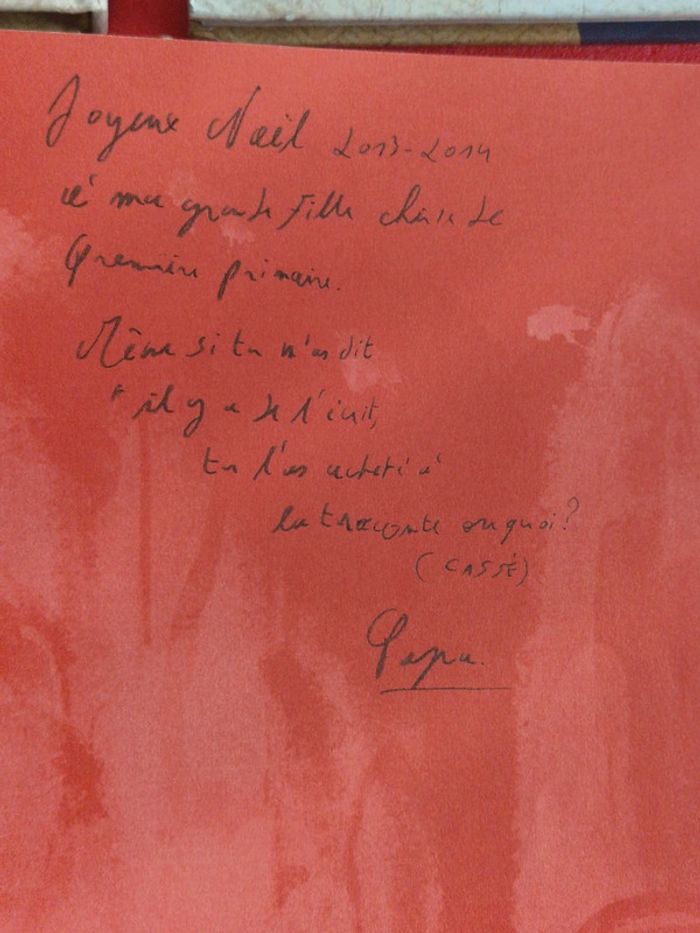 Joyeux Noël 2013-2014
à ma grande fille chérie de
Première primaire.
Même si tu m'as dit
" il y a de l'écrit,
tu l'as acheté à
la  ou quoi?
(CASSÉ)
Papa.